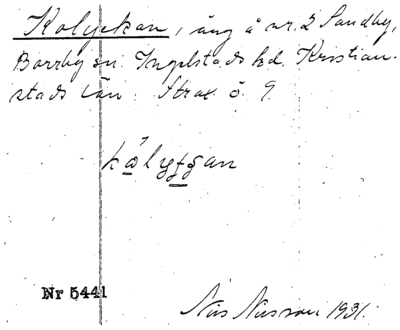 Kolyckan, äng å nr. 2 Sandby,
Borrby sn. Ingelstads hd. Kristian-
stads län. Strax ö. 9.
kålyƷgan
Nr 5441
Nils Nilsson 1931.